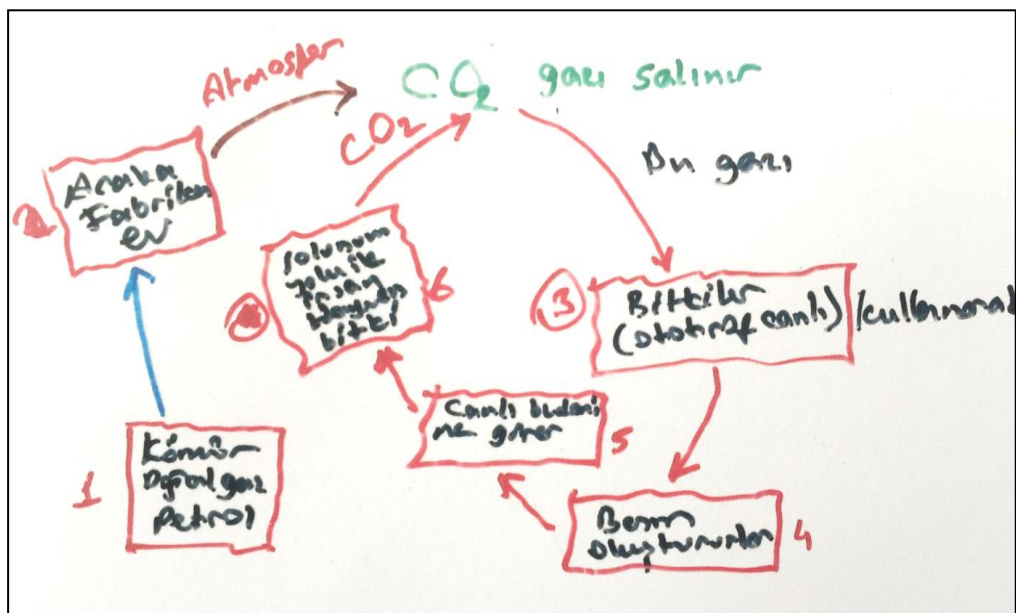 Atmosfer
CO2 gazı salınır
CO2
Bu gazı
Araba
Fabrikalar
ev
2
solunum
insan
hayvan
bitki
6
3
Bitkiler
(ototrof canlı) kullanarak
Canlı bedeni
ne girer
5
1
Kömür
Doğal gaz
petrol
Besin
oluştururlar
4